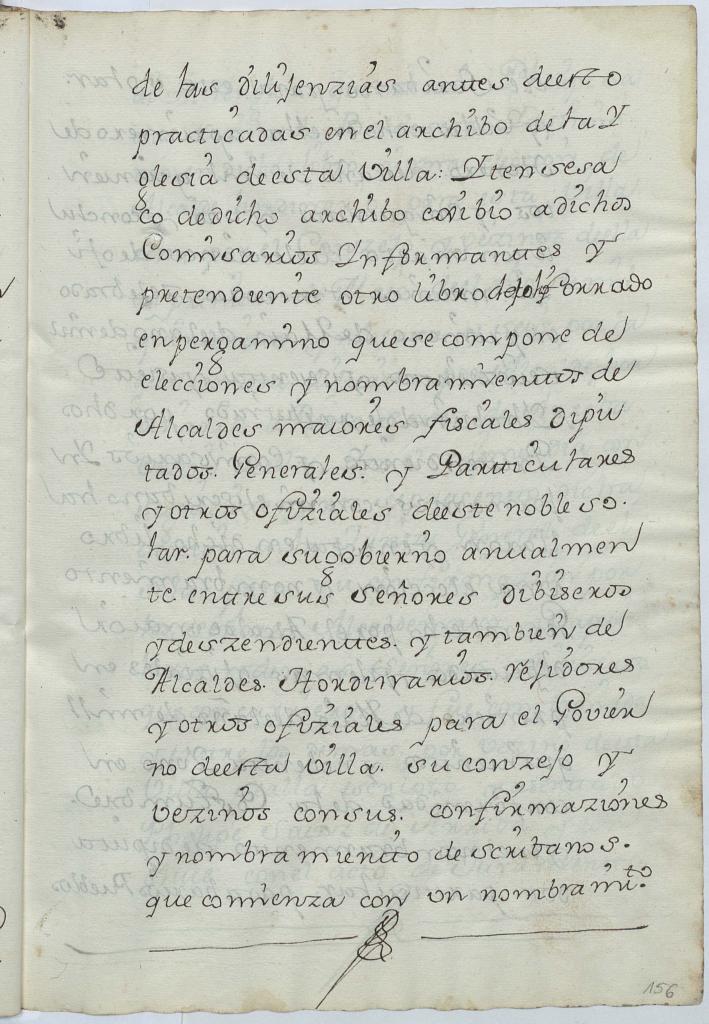 de las dilijenzias anttes de estto
practicadas en el archibo de la Y
glesia de esta Villa: Yten se sa
co de dicho archibo exibio a dichos
Comisarios Informanttes y
pretendiente otro libro forrado
en pergamino que se compone de
elecciones y nombramienttos de
Alcaldes maiores fiscales Dipu
tados. Generales. y Partticulares
y otros ofiziales de este noble so.
lar. para su gobierno anualmen
te. entre sus señores Dibiseros
y deszendienttes. y tambien de
Alcaldes. Hordinarios. rejidores
y otros ofiziales para el Govier
no de esta Villa. su conzejo y
vezinos con sus. confirmaziones
y nombramientto de scribanos.
que comienza con un nombramto.
156